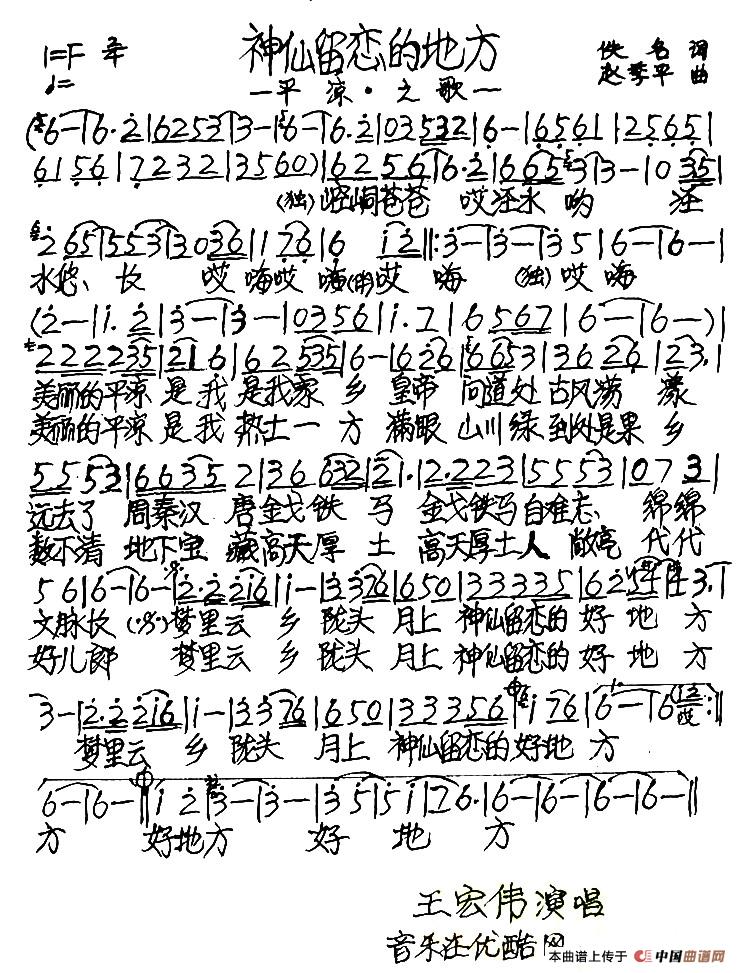 神仙留恋的地方
—平凉·之歌—
1=F 2/4
佚名 词
赵季平 曲
(6-|6·2|6253|3-|6-|6·2|03532|6-|6561|12565|
6156|7232|35600)|6256|6·2|6665|3-|1035|
(独)崆峒苍苍 哎泾水 哟 泾
265|553|3036|1176|6 i2||:3-|3-|35|6-|6-|
水悠、长 哎嗨哎嗨(甜)哎 嗨 (独)哎嗨
(2-|i.2|3-|3-|0356|i.7|6567|6-|6-)|
222235|216|62535|6-|626|6653|3626|23.|
美丽的平凉 是我 是我家 乡 皇帝 问道处 古风荡 漾
美丽的平凉 是我 热土一 方 满眼 山川绿 到处是果 乡
5553|66352|36632|21.|2.223|5553|073|
远去了 周秦汉 唐金戈铁 马 金戈铁马自难忘、绵绵
数不清 地下宝 藏高天厚 土 高天厚土人 敞亮 代代
56|6-|6-|2.2216|i-|3376|650|33335|62
文脉长 梦里云 乡 陇头 月上 神仙留恋的 好 地 方
好儿郎 梦里云 乡 陇头 月上 神仙留恋的 好 地 方
3-|2.2216|i-|3376|650|333356|i76|6-|6
梦里云 乡 陇头 月上 神仙留恋的好地 方
6-|6-||i2|3-|3-|35|5i|76.|6-|6-|6-|6-||
方 好地方 好 地 方
王宏伟演唱
音乐在优酷网
本曲谱上传于 中国曲谱网